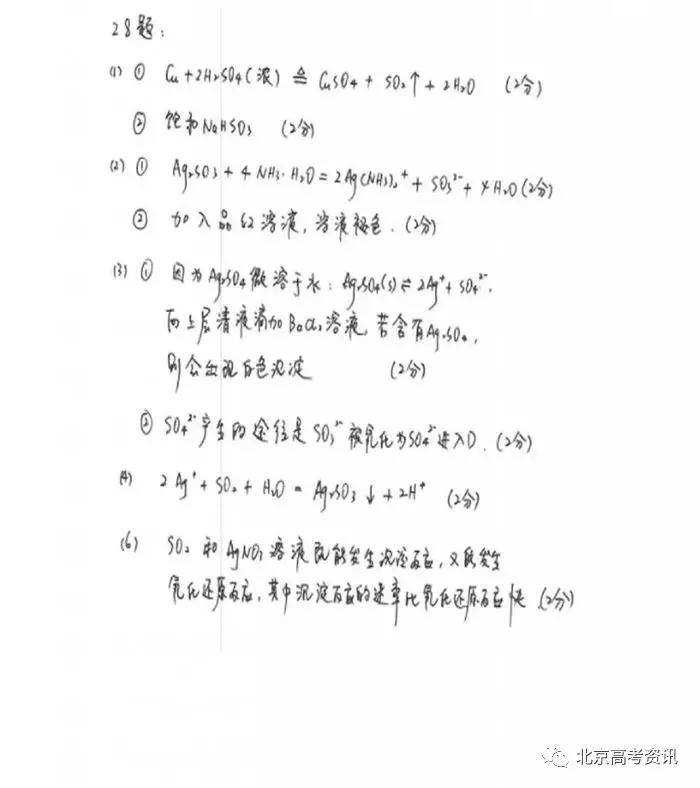 28题:
(1) ① Cu+2H₂SO₄(浓) ≜ CuSO₄ + SO₂↑ + 2H₂O (2分)
② 饱和NaHSO₃ (2分)
(2) ① Ag₂SO₃ + 4NH₃·H₂O = 2Ag(NH₃)₂⁺ + SO₃²⁻ + 4H₂O (2分)
② 加入品红溶液,溶液褪色. (2分)
(3) ① 因为Ag₂SO₄微溶于水: Ag₂SO₄(s) ⇌ 2Ag⁺ + SO₄²⁻.
向上层清液滴加BaCl₂溶液, 若含有Ag₂SO₄,
则会出现白色沉淀 (2分)
② SO₄²⁻产生的途径是SO₃²⁻被氧化为SO₄²⁻进入D. (2分)
(4) 2Ag⁺ + SO₂ + H₂O = Ag₂SO₃↓ + 2H⁺ (2分)
(6) SO₂ 和 AgNO₃ 溶液既能发生沉淀反应,又能发生
氧化还原反应,其中沉淀反应的速率比氧化还原反应快 (2分)
北京高考资讯